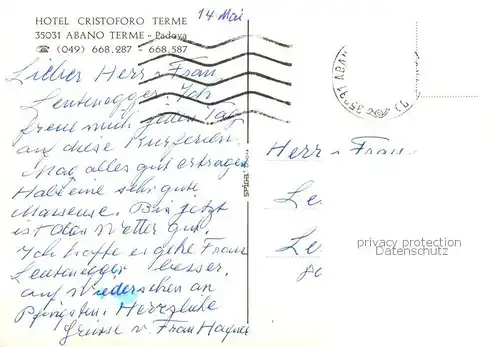 14 Mai
HOTEL CRISTOFORO TERME
35031 ABANO TERME - Padova
☎ (049) 668.287 - 668.587
Lieber Herr u Frau
Leutenegger. Ich
freue mich jeden Tag
an diese Kurferien.
Mag alles gut ertragen
Habe eine sehr gute
Masseuse. Bis jetzt
ist das Wetter gut.
Ich hoffe es gehe Frau
Leutenegger besser.
auf Wiedersehen an
Pfingsten. Herzliche
Grüsse v. Frau
35031 ABAN
Herr u Frau
Le
Le
privacy protection
Datenschutz